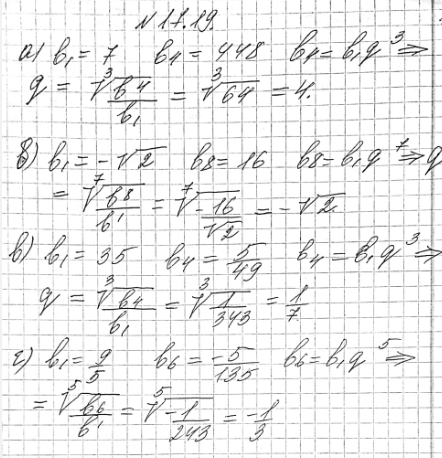 № 17.19.
а) b₁ = 7 b₄ = 448 b₄ = b₁q³ ⇒
q = ∛(b₄/b₁) = ∛64 = 4.
б) b₁ = -√2 b₈ = 16 b₈ = b₁q⁷ ⇒ q
= ⁷√(b₈/b₁) = ⁷√(-16/√2) = -√2.
в) b₁ = 35 b₄ = 5/49 b₄ = b₁q³ ⇒
q = ∛(b₄/b₁) = ∛(1/343) = 1/7
г) b₁ = 9/5 b₆ = -5/135 b₆ = b₁q⁵ ⇒
= ⁵√(b₆/b₁) = ⁵√(-1/243) = -1/3